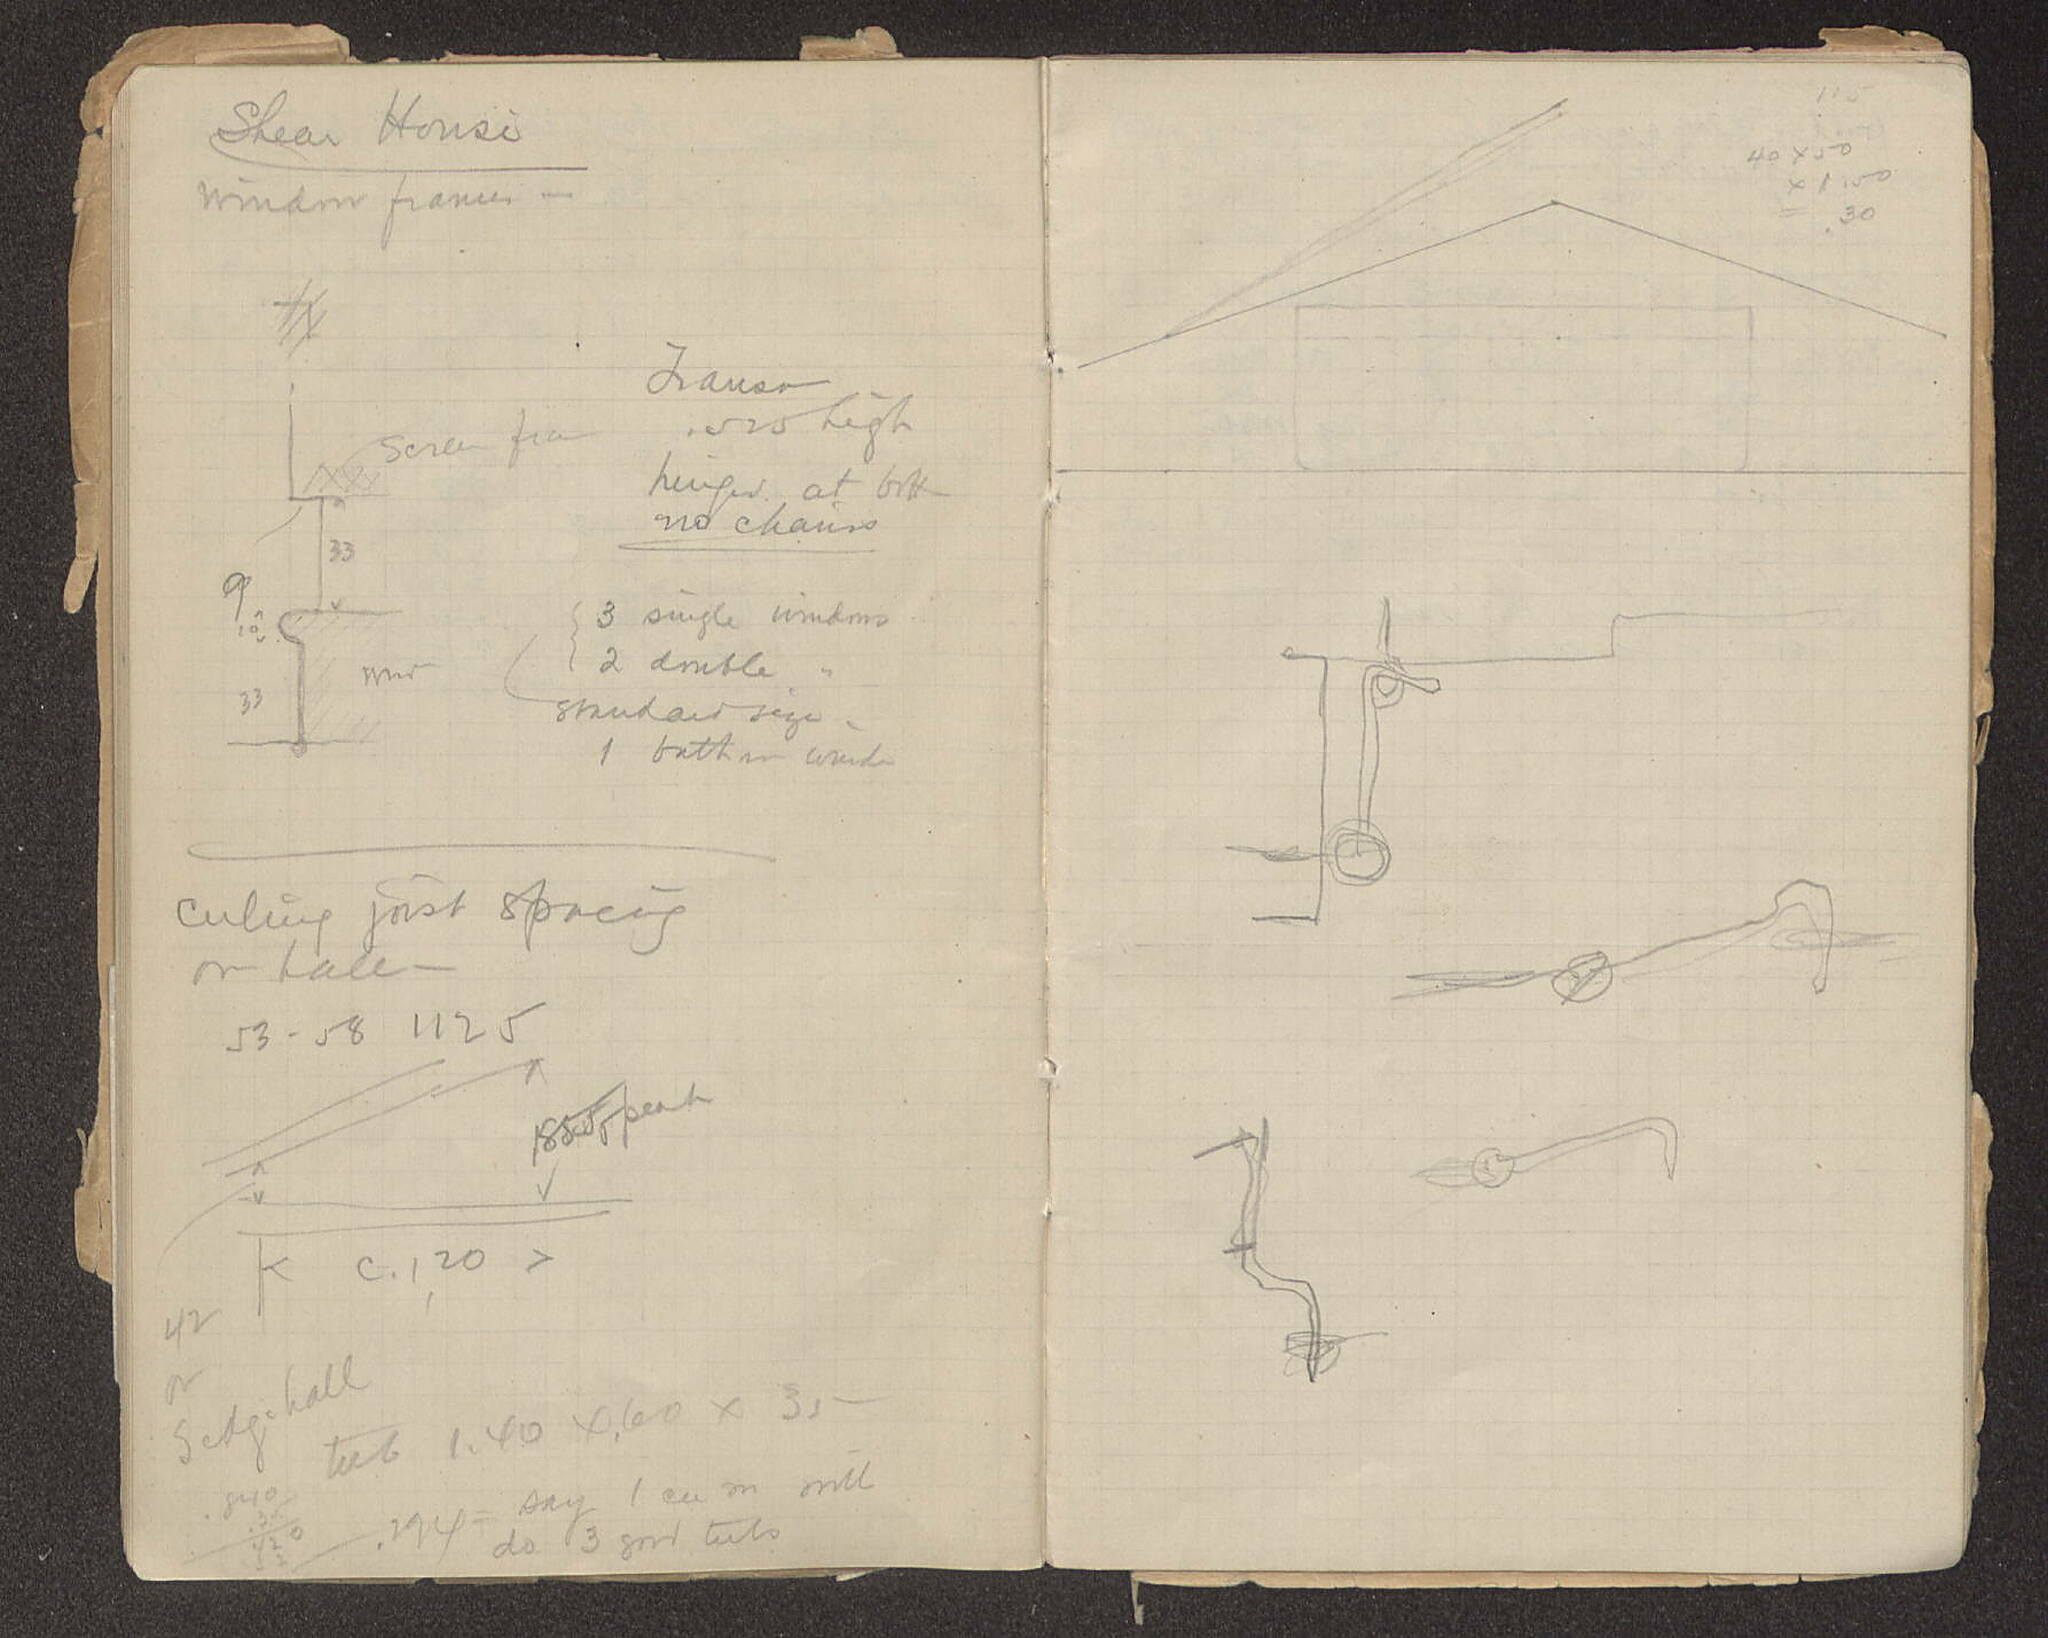 Shear House
Window frames —
Transo
.525 high
Screen fra
hinges at bott
no chains
33
9
10
3 single windows
2 double "
33
standard size -
1 bathrm windo
Ceiling joist spacing
or hall
53 - 58 1125
peak
C. 1,20
42
or
hall
tub 1.40 x .60 x 35
.840
.294 = say 1 cu m will
do 3 good tubs
115
40 x 50
x 1 50
= .30